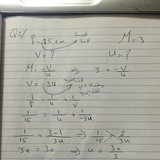 Q2/
F = 15 cm M = 3
V = ? U = ?
M = -V/u ⇒ 3 = -V/u
V = -3u
1/f = 1/u + 1/V
1/15 = 1/u + 1/-3u
1/15 = 3-1/3u ⇒ 1/15 = 2/3u
3u = 30 ⇒ u = 30/3